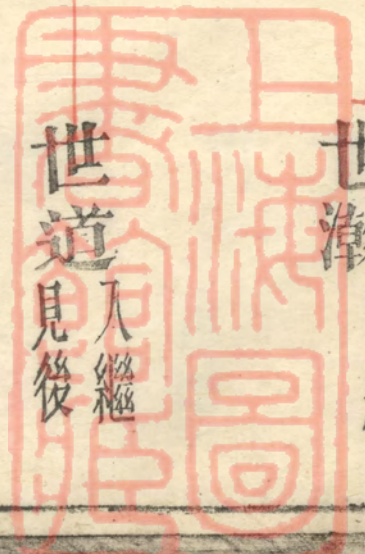 世道
入繼
見後
上海圖
書館藏